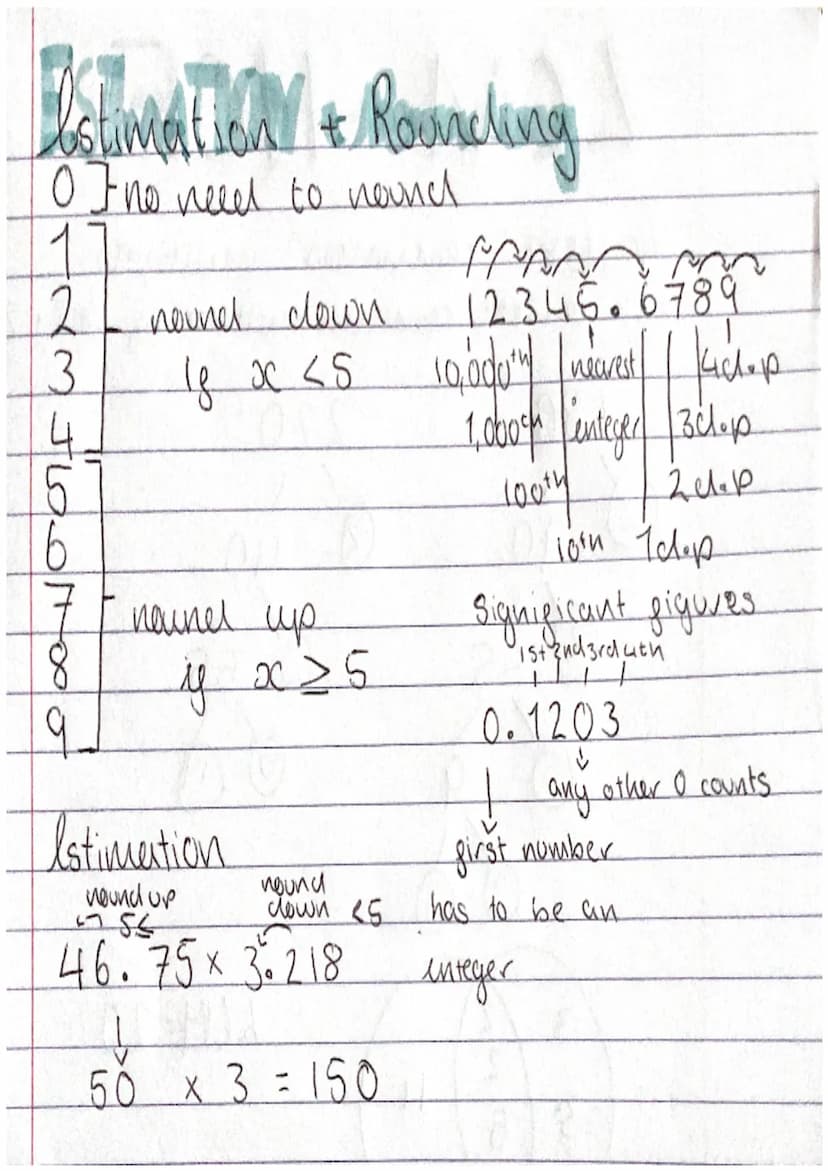 Estimation + Rounding
0 } no need to round
1
2 round down
3 if x < 5
4
5
6
7 round up
8 if x ≥ 5
9
12345.6789
10,000th nearest 4d.p
1,000th integer 3d.p
100th 2d.p
10th 1d.p
significant figures
1st 2nd 3rd 4th
0.1203
any other 0 counts
first number
has to be an
integer
Estimation
round up
5≤
round
down <5
46.75 x 3.218
50 x 3 = 150